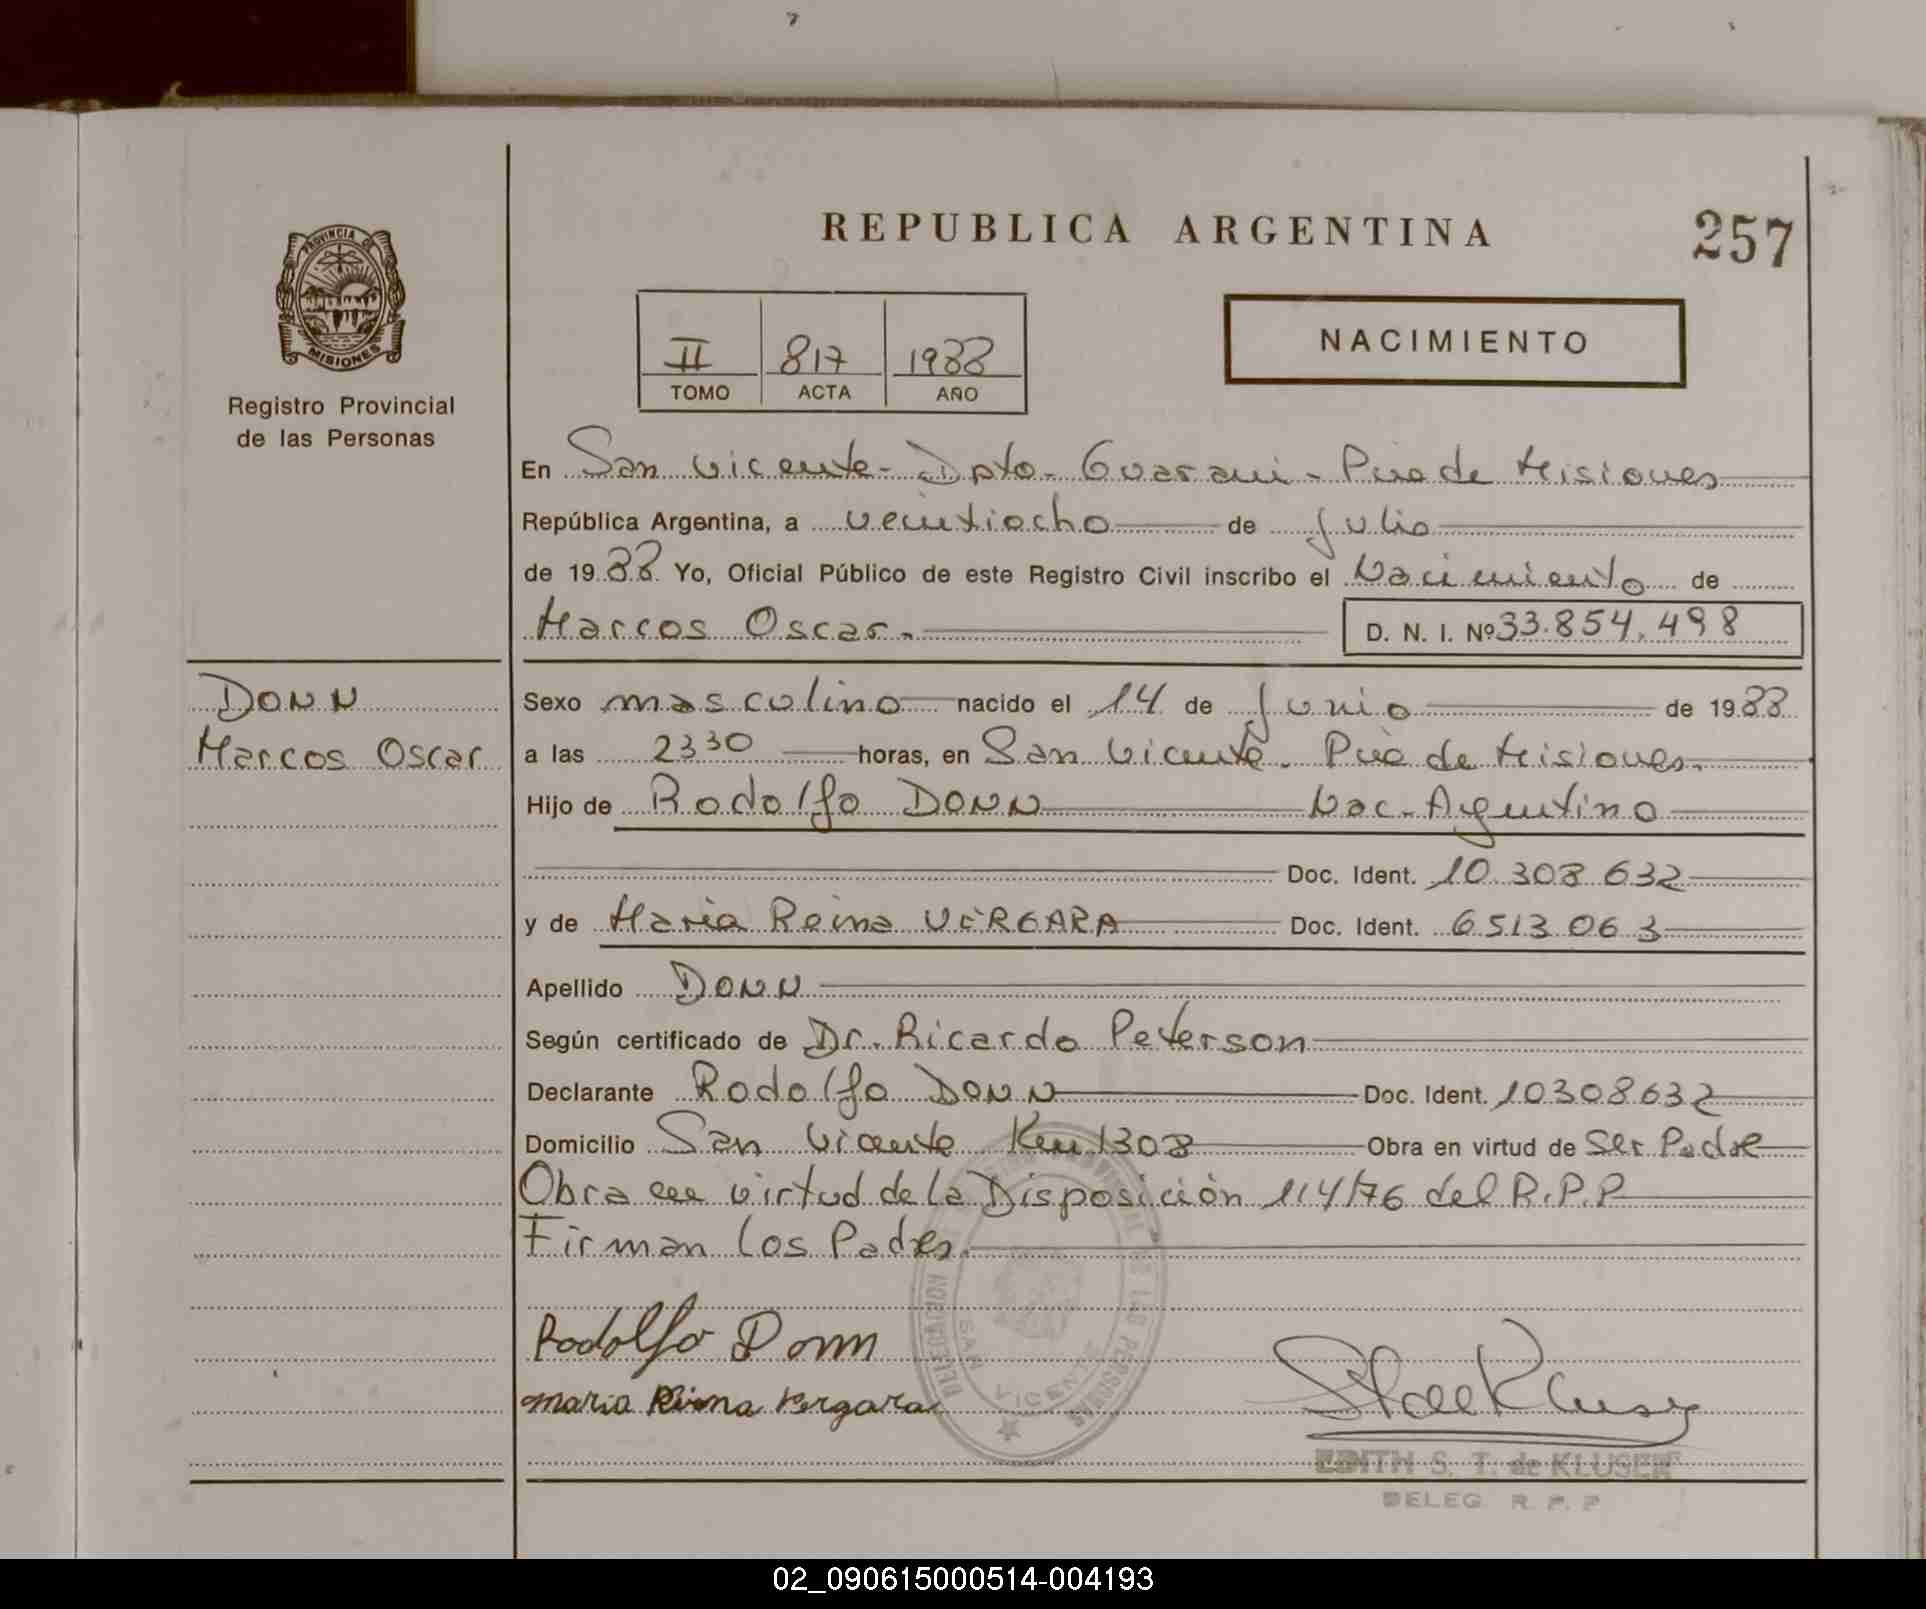 REPUBLICA ARGENTINA
257
PROVINCIA DE
MISIONES
Registro Provincial
de las Personas
II 817 1988
TOMO ACTA AÑO
NACIMIENTO
En San Vicente - Dpto - Guarani - Pcia de Misiones
República Argentina, a veintiocho de Julio
de 1988 Yo, Oficial Público de este Registro Civil inscribo el Nacimiento de
Marcos Oscar.
D. N. I. Nº 33.854.498
DONN
Marcos Oscar
Sexo masculino nacido el 14 de Junio de 1988
a las 2330 horas, en San Vicente. Pcia de Misiones.
Hijo de Rodolfo DONN Nac - Argentino
Doc. Ident. 10 308 632
y de Maria Reina VERGARA Doc. Ident. 6 513 063
Apellido DONN
Según certificado de Dr. Ricardo Peterson
Declarante Rodolfo DONN Doc. Ident. 10308632
Domicilio San Vicente Km 1308 Obra en virtud de Ser Padre
Obra en virtud de la Disposición 114/76 del R.P.P
Firman los Padres.
Rodolfo Donn
maria Reina Vergara
SAN VICENTE
EDITH S. T. de KLUSER
DELEG. R. P. P
02_090615000514-004193